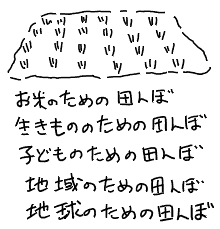 お米のための田んぼ
生きもののための田んぼ
子どものための田んぼ
地域のための田んぼ
地球のための田んぼ